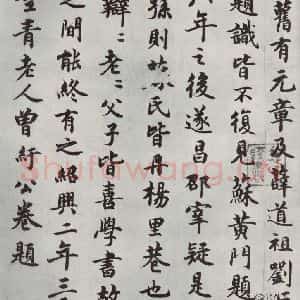 舊有元章及薛道祖劉
題識皆不復見蘇黃門題
八年之後遂昌邵宰疑是
孫則蘇氏皆丹楊里巷也
辯〻老〻父子皆喜學書故
之間能終有之紹興二年三
青老人曾紆公卷題
Shufawang.cn